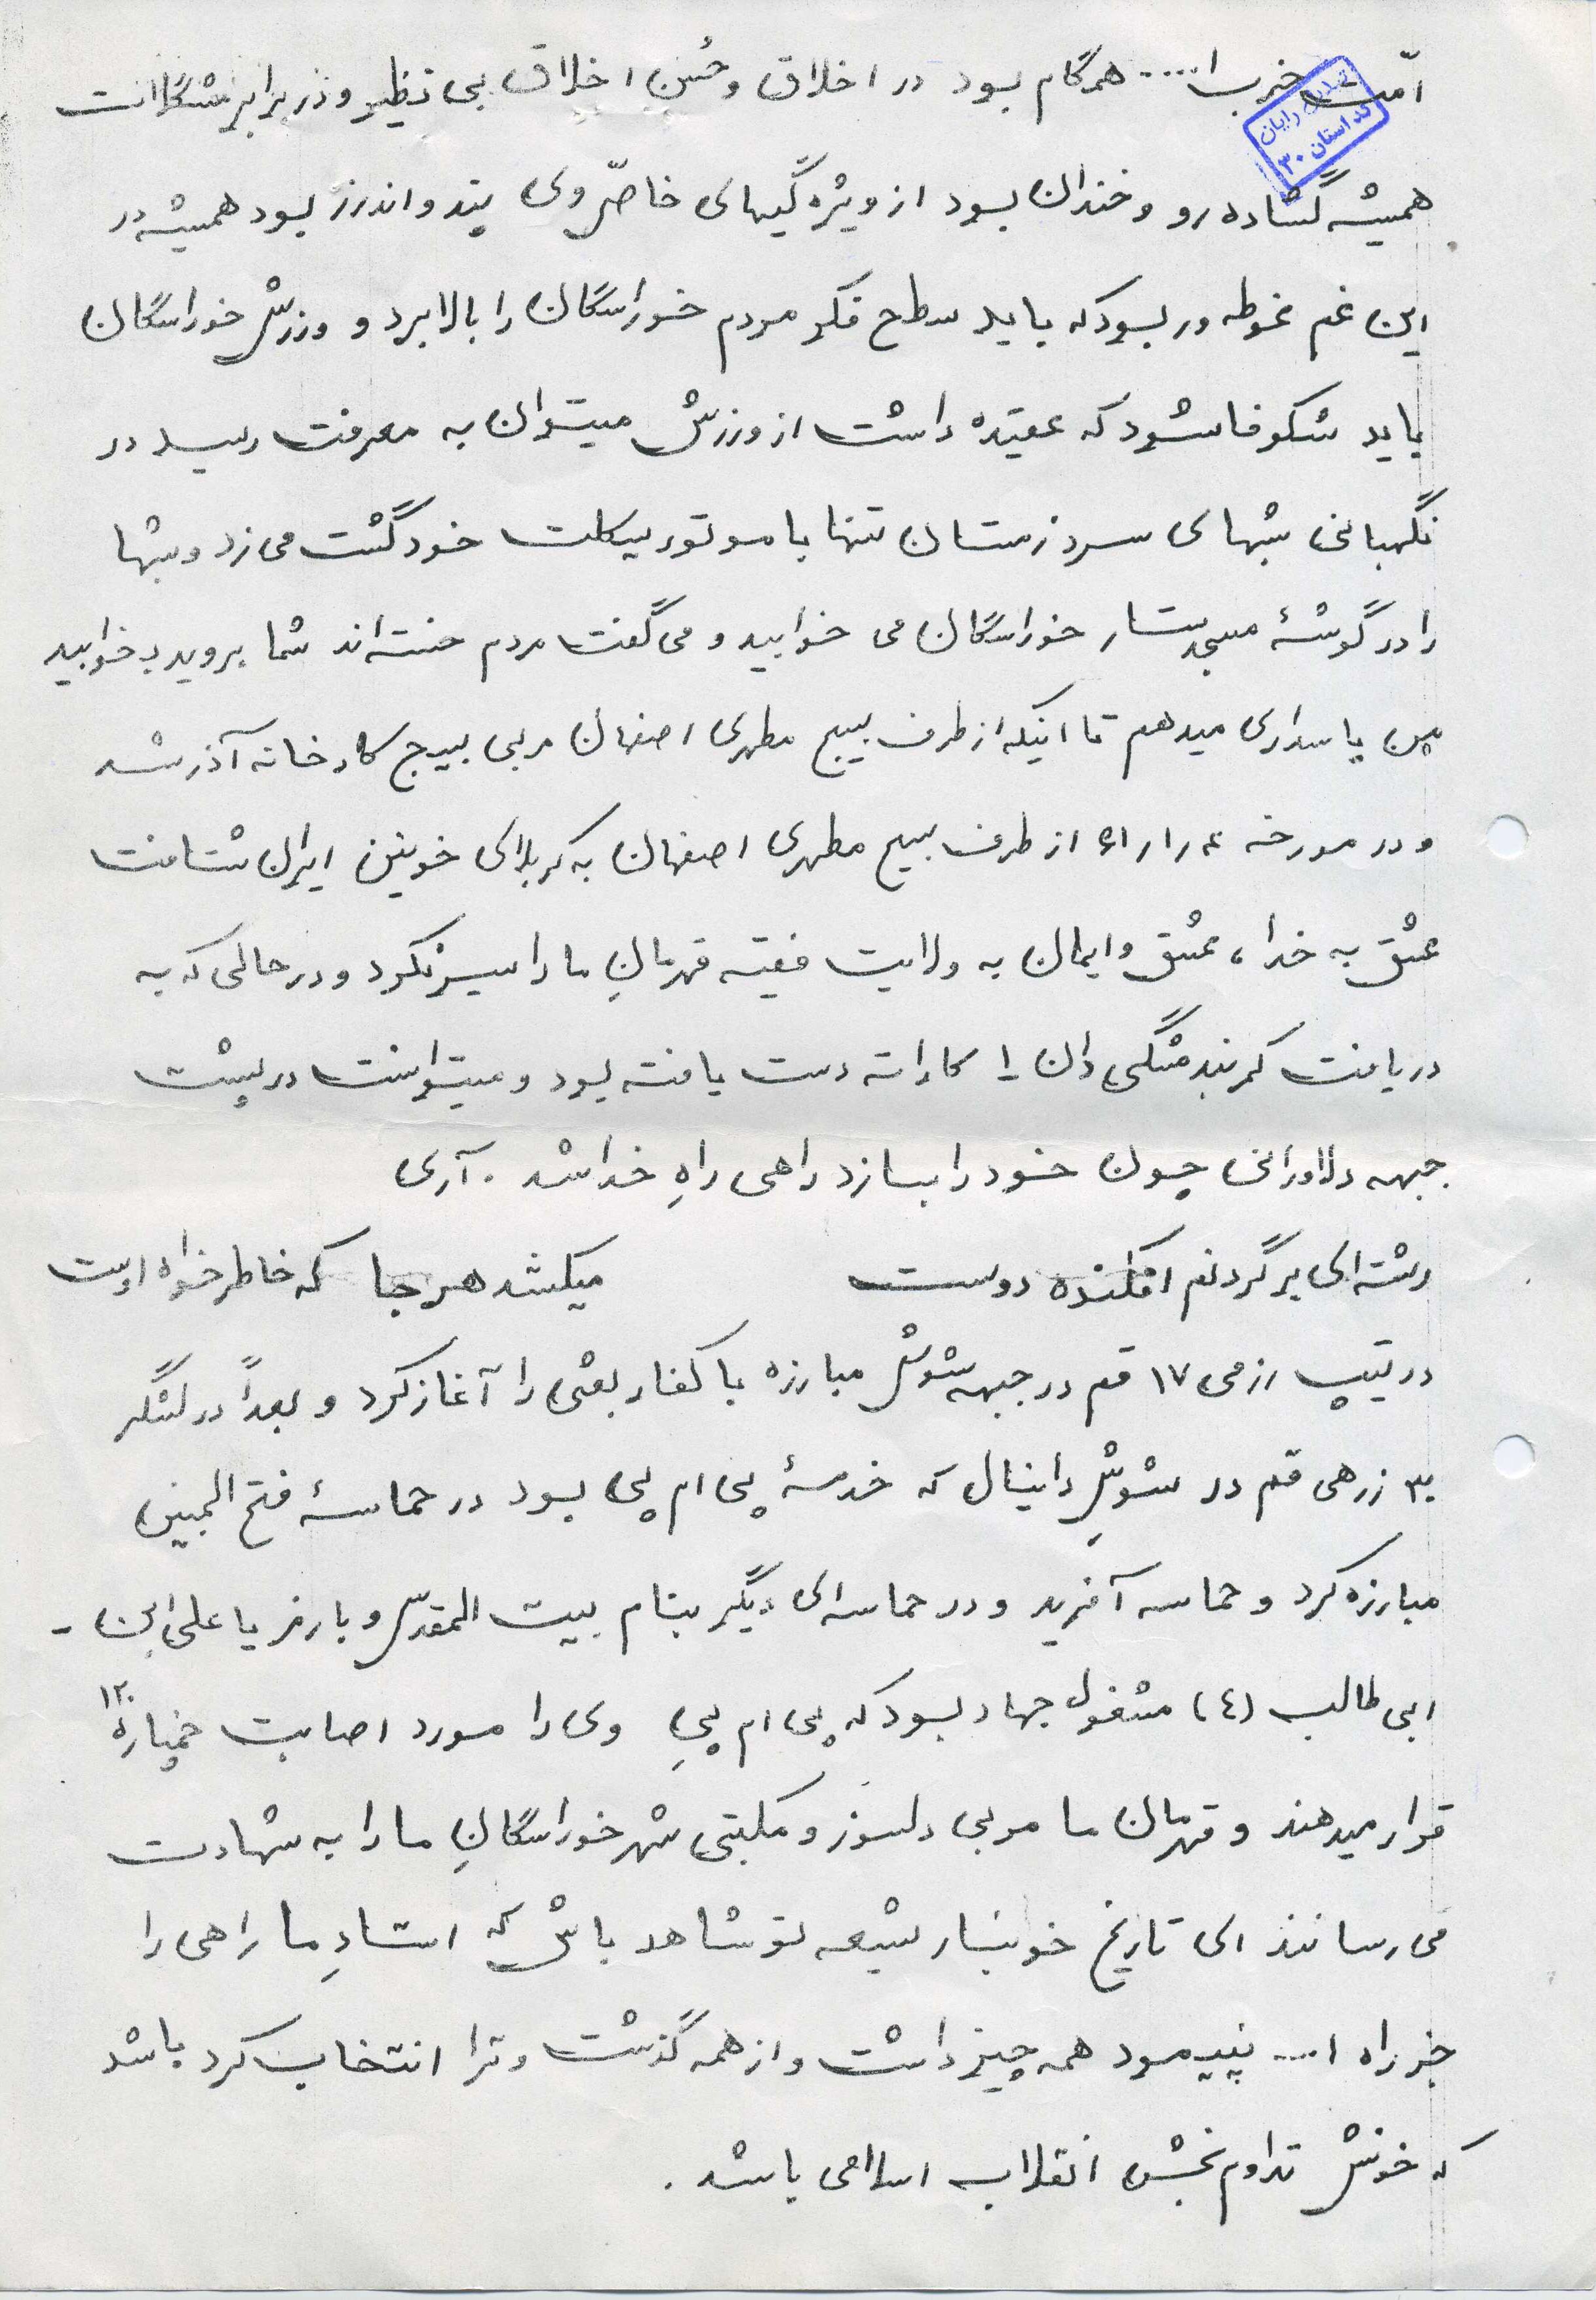 امّت حزب ا.... همگام بود در اخلاق و حُسن اخلاق بی نظیر و در برابر مشکلات
کد استان ۳۰
همیشه گشاده رو و خندان بود از ویژه گیهای خاصّ وی پند و اندرز بود همیشه در
این غم غوطه ور بود که باید سطح فکر مردم خوراسگان را بالا برد و ورزش خوراسگان
باید شکوفا شود که عقیده داشت از ورزش میتوان به معرفت رسید در
نگهبانی شبهای سرد زمستان تنها با موتور سیکلت خود گشت می زد و شبها
را در گوشهٔ مسجد خوراسگان می خوابید و می گفت مردم خسته اند شما بروید بخوابید
من پاسداری میدهم تا اینکه از طرف بسیج مطهری اصفهان مربی بسیج کارخانه آذر شد
و در مورخه از طرف بسیج مطهری اصفهان به کربلای خونین ایران شتافت
عشق به خدا، عشق و ایمان به ولایت فقیه قهرمانِ ما را سیر نکرد و در حالی که به
دریافت کمربند مشگی دان ۱ کاراته دست یافته بود و میتوانست در پشت
جبهه دلاورانی چون خود را بسازد راهی راهِ خدا شد . آری
رشته ای بر گردنم افکنده دوست میکشد هر جا که خاطر خواه اوست
در تیپ رزمی ۱۷ قم در جبهه شوش مبارزه با کفار بعثی را آغاز کرد و بعداً در لشگر
۳۰ زرهی قم در شوشِ دانیال که خدمهٔ پی ام پی بود در حماسهٔ فتح المبین
مبارزه کرد و حماسه آفرید و در حماسه ای دیگر بنام بیت المقدّس و با رمز یا علی ابن -
ابی طالب (ع) مشغول جهاد بود که پی ام پیِ وی را مورد اصابت خمپارهٔ ۱۲۰
قرار میدهند و قهرمان ما مربی دلسوز و مکتبی شهر خوراسگانِ ما را به شهادت
می رسانند ای تاریخ خونبار شیعه تو شاهد باش که استادِ ما راهی را
جز راه ا... نپیمود همه چیز داشت و از همه گذشت و ترا انتخاب کرد باشد
که خونش تداوم بخش انقلاب اسلامی باشد .